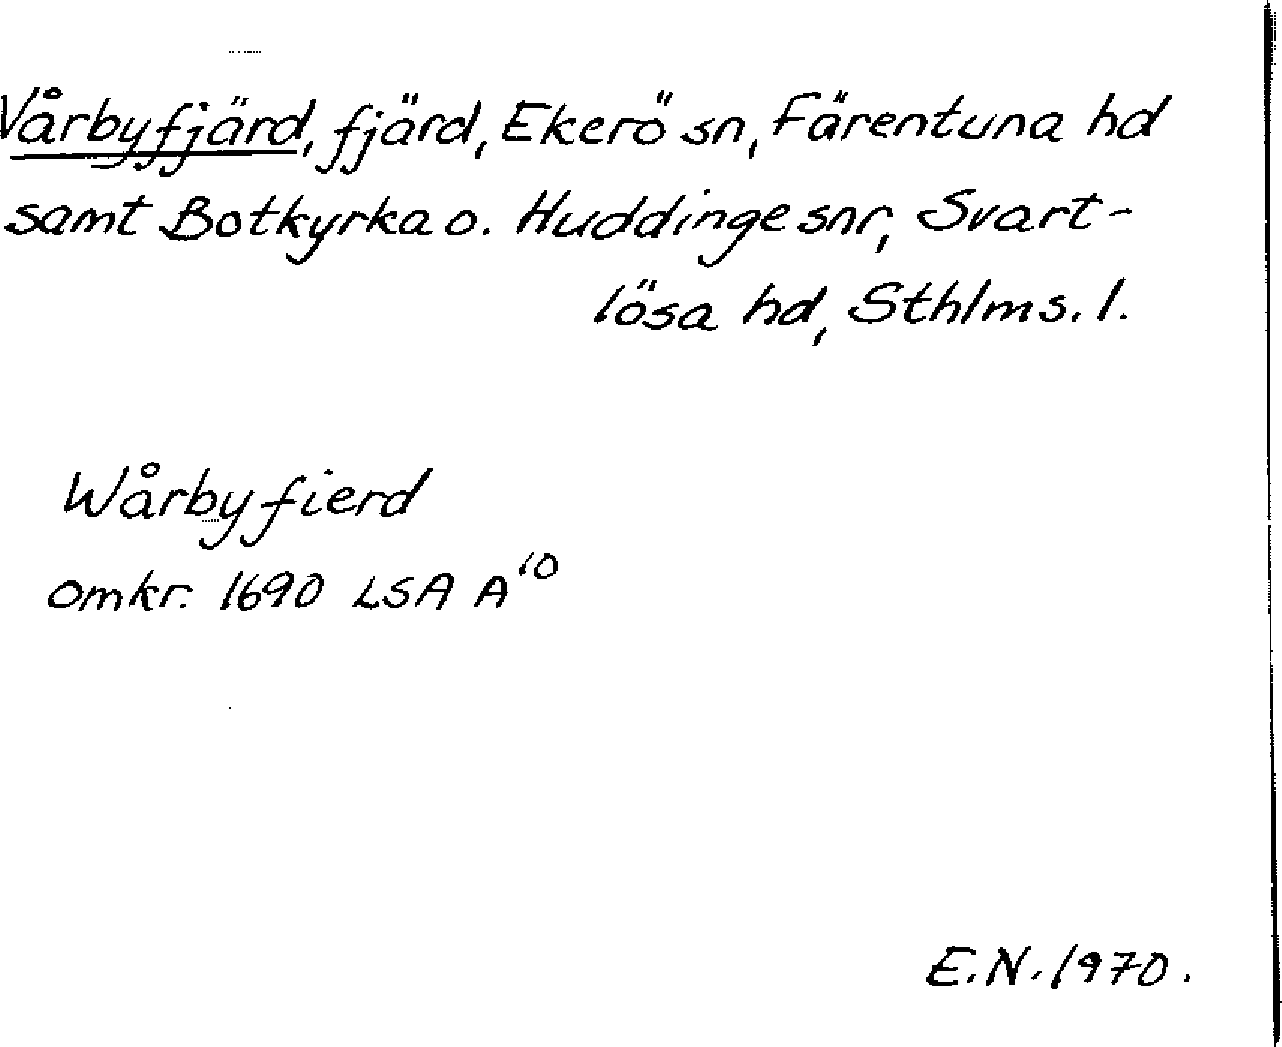 Vårbyfjärd, fjärd, Ekerö sn, Färentuna hd
samt Botkyrka o. Huddinge snr, Svart-
lösa hd, Sthlms. l.
Wårbyfierd
omkr. 1690 LSA A¹⁰
E.N. 1970.